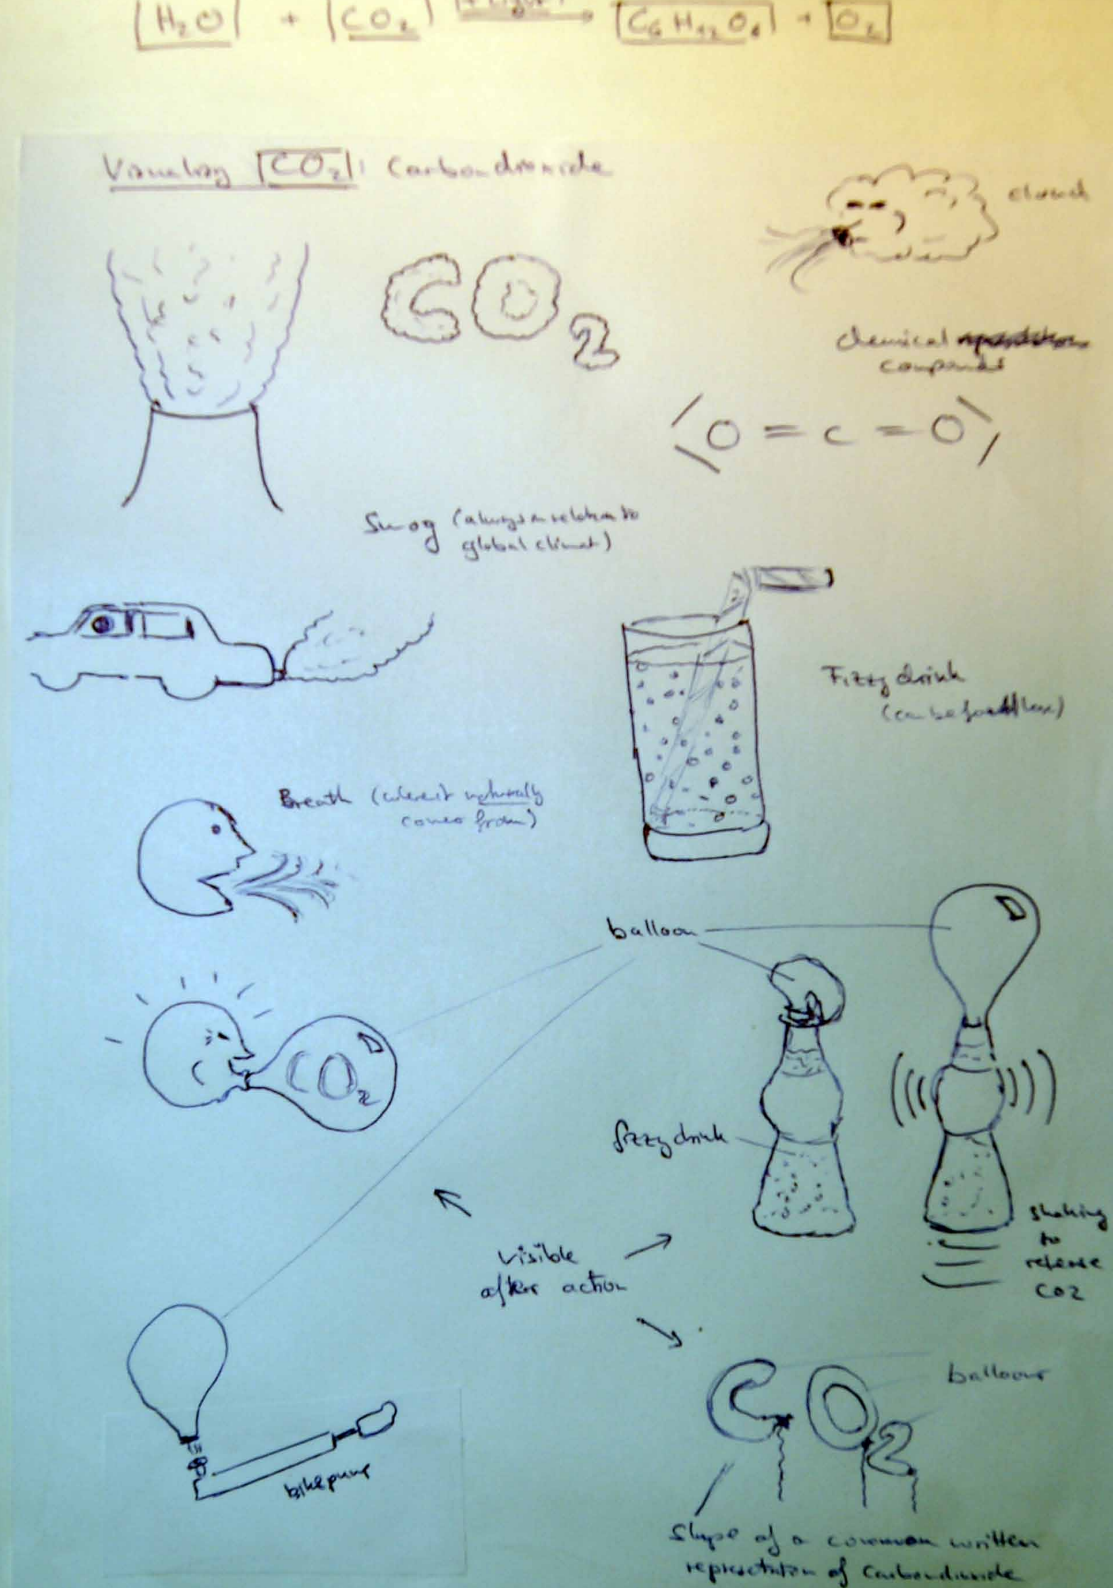 H₂O + CO₂ + Light → C₆H₁₂O₆ + O₂
CO₂: Carbondioxide
cloud
CO₂
chemical
compound
O = C = O
Smog (always in relation to
global climat)
Fizzy drink
(can be found
Breath (where it naturally
comes from)
balloon
CO₂
fizzy drink
shaking
to
release
CO2
visible
after action
balloons
CO2
bikepump
Shape of a common written
representation of Carbondioxide